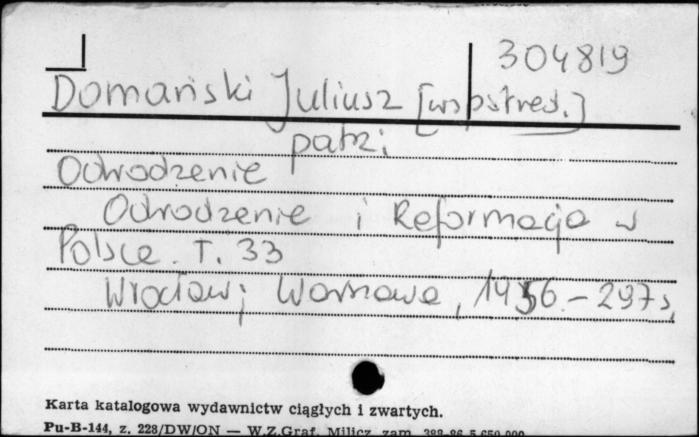 304819
Domański Juliusz [współred.]
patrz:
Odrodzenie
Odrodzenie i Reformacja w
Polsce. T. 33
Wrocław; Warszawa, 1956. - 297 s,
Karta katalogowa wydawnictw ciągłych i zwartych.
Pu-B-144, z. 228/DW/ON — W.Z.Graf. Milicz zam. 388-86 5.650.000